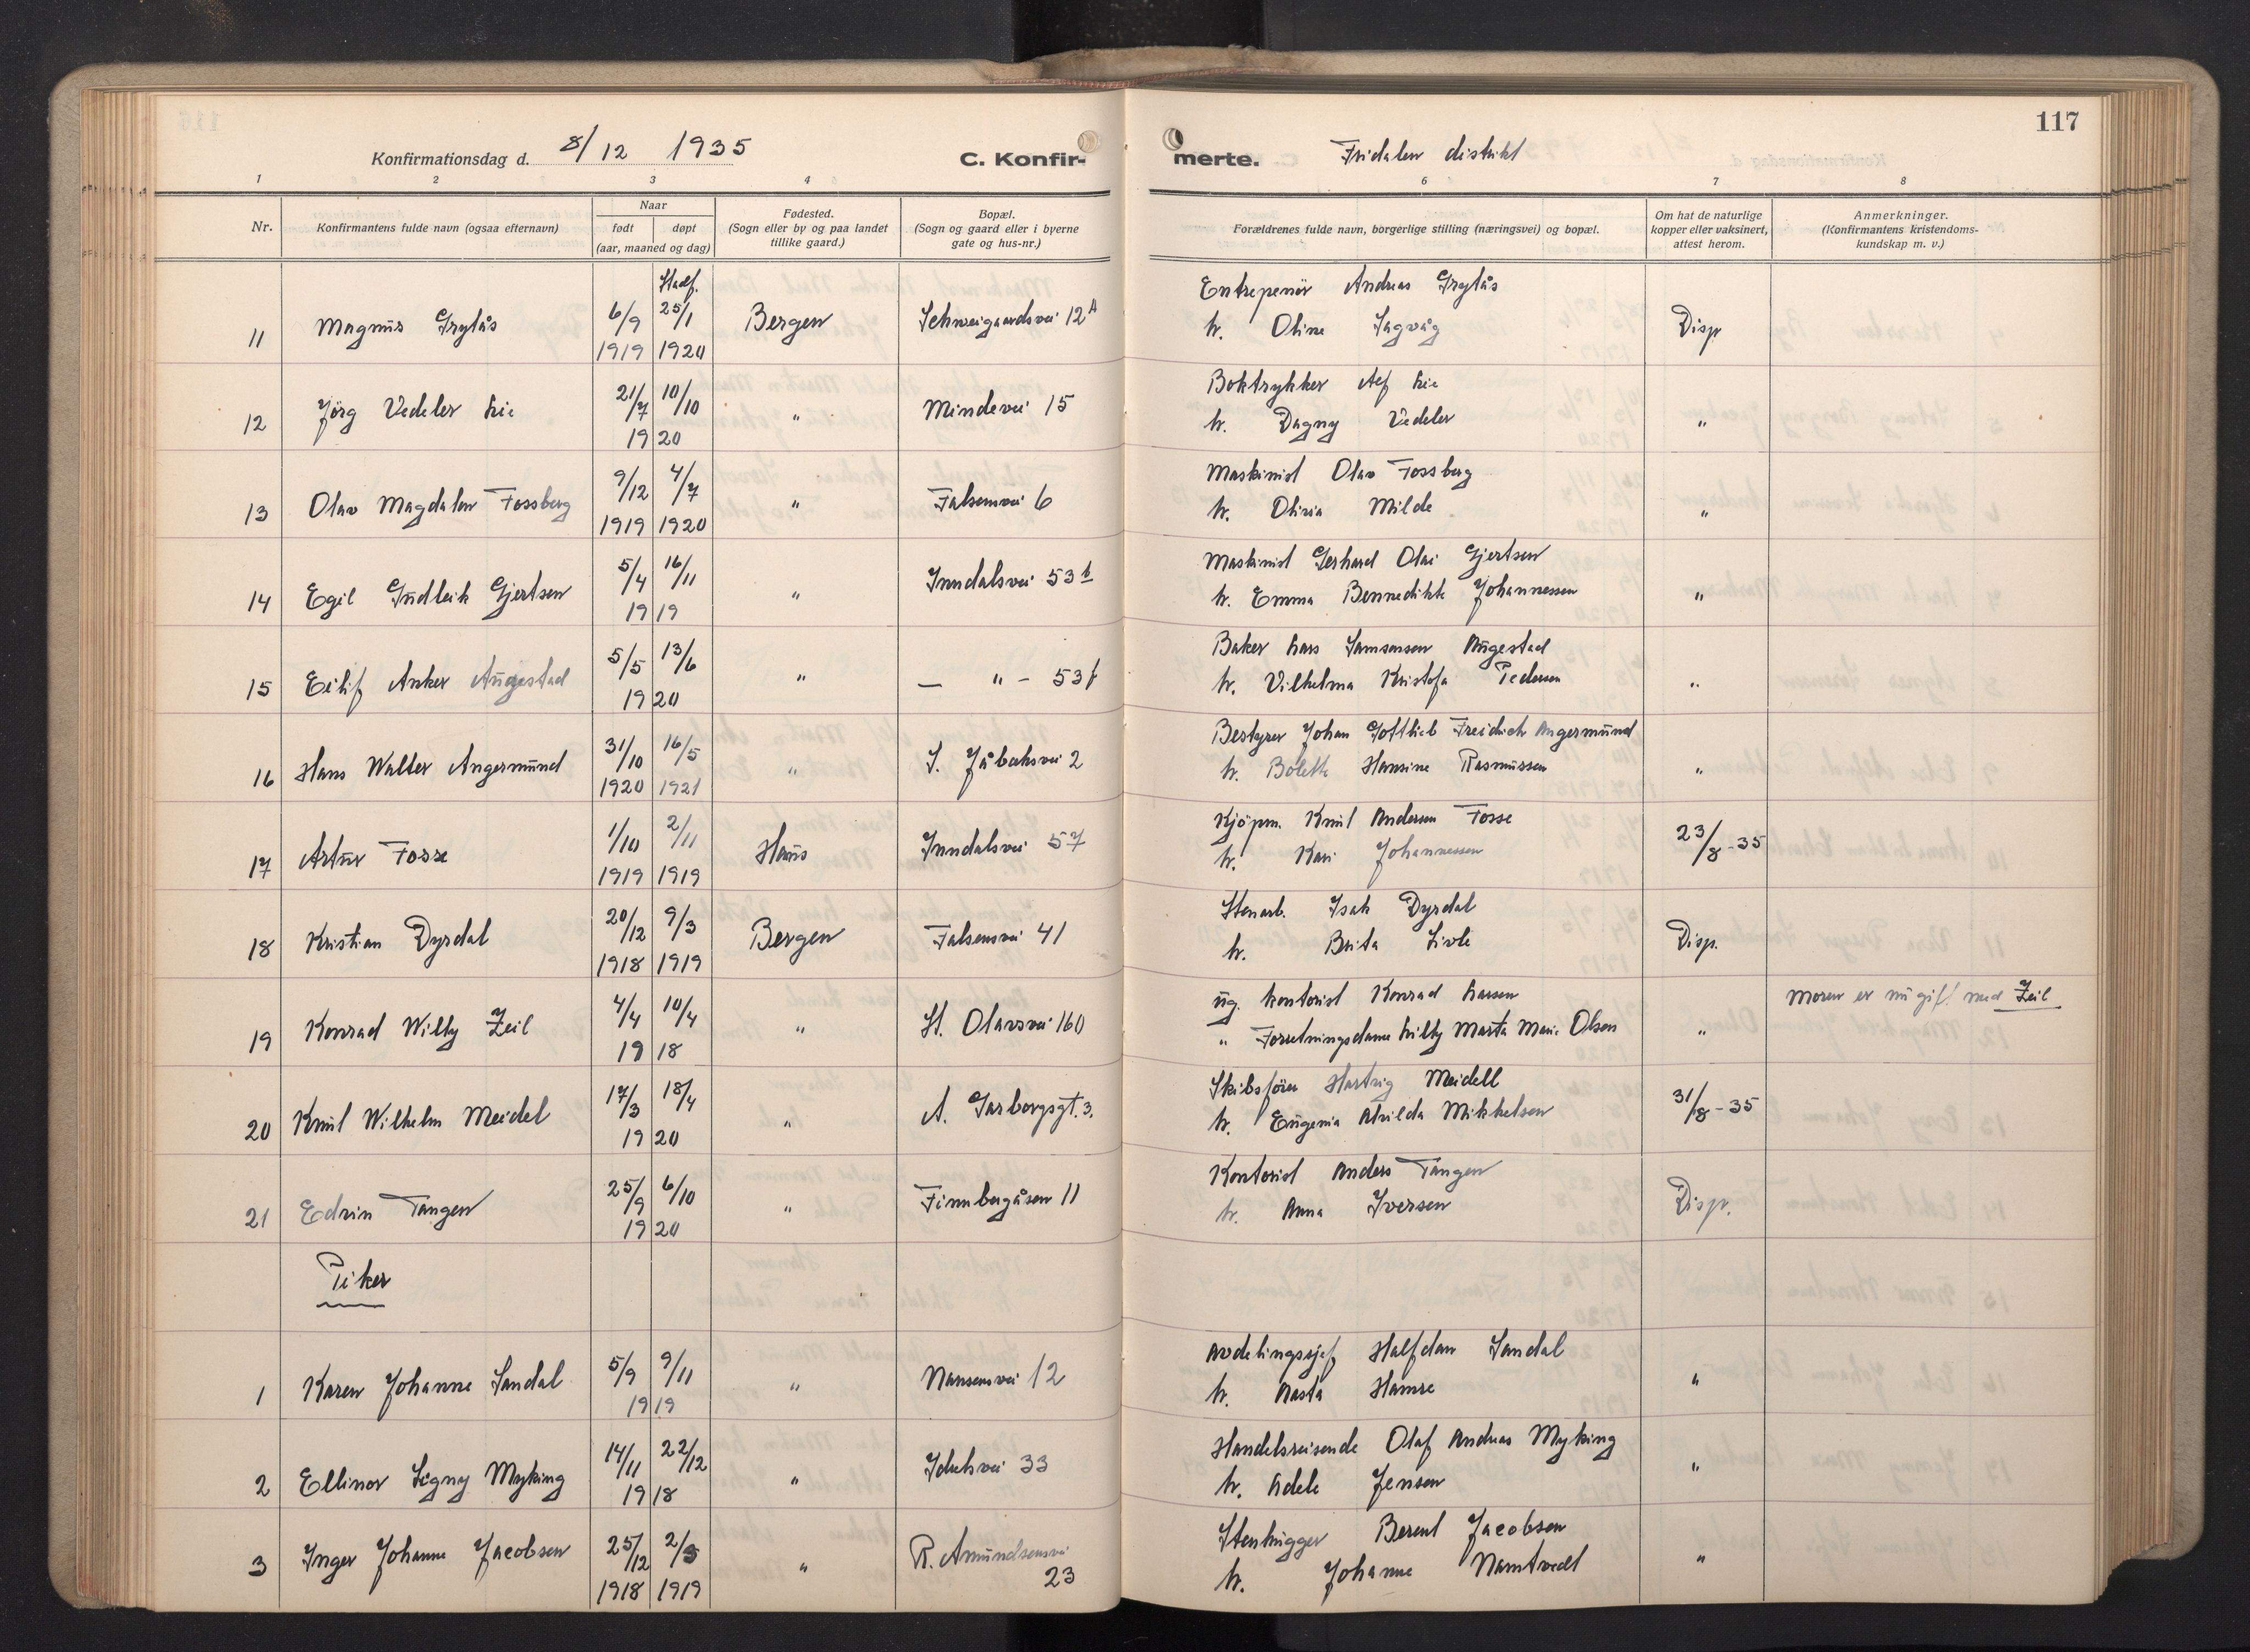 117
Konfirmationsdag d. 8/12 1935 C. Konfir- merte. Fridalen distrikt
1 2 3 4 6 7 8
Nr. Konfirmantens fulde navn (ogsaa efternavn) Naar født døpt (aar, maaned og dag) Fødested. (Sogn eller by og paa landet tillike gaard.) Bopæl. (Sogn og gaard eller i byerne gate og hus-nr.) Forældrenes fulde navn, borgerlige stilling (næringsvei) og bopæl. Om hat de naturlige kopper eller vaksinert, attest herom. Anmerkninger. (Konfirmantens kristendoms- kundskap m. v.)
Entrepenör Andreas Grytås
11 Magnus Grytås 6/9 1919 25/1 1920 Bergen Schweigaardsvei 12A h. Oline Sagvåg Disp
Boktrykker Alf Lie
12 Jörg Vedeler Lie 21/7 10/10 1920 " Mindevei 15 h. Dagny Vedeler "
Maskinist Olav Fossberg
13 Olav Magdalon Fossberg 9/12 1919 4/7 1920 " Falsensvei 6 h. Olivia Milde "
Maskinist Gerhard Olai Gjertsen
14 Egil Gudleik Gjertsen 5/4 16/11 1919 " Inndalsvei 53b h. Emma Bennedikte Johannessen "
Baker Lars Samsonsen Augestad
15 Eilif Anker Augestad 5/5 13/6 1920 " — " – 53 h. Vilhelma Kristofa Pedersen "
Bestyrer Johan Gottlieb Freidich Angermund
16 Hans Walter Angermund 31/10 1920 16/5 1921 " S. Jåbæksvei 2 h. Bolette Hansine Rasmussen "
Kjöpm. Knut Andersen Fosse
17 Artur Fosse 1/10 1919 2/11 1919 Haus Inndalsvei 57 h. Kari Johannessen 23/8-35
Stenarb. Isak Dyrdal
18 Kristian Dyrdal 20/12 1918 9/3 1919 Bergen Falsensvei 41 h. Brita Livle Disp.
ug. kontorist Konrad Larsen moren er nu gift med Zeil
19 Konrad Willy Zeil 4/4 10/4 1918 " St. Olavsvei 160 " Forretningsdame Lilly Marta Marie Olsen "
Skibsförer Hartvig Meidell
20 Knut Wilhelm Meidel 17/3 18/4 1920 " A. Garborgsgt. 3. h. Eugenia Alvilda Mikkelsen 31/8-35
Kontorist Anders Tangen
21 Edvin Tangen 25/9 6/10 1920 " Finnbergåsen 11 h. Anna Iversen Disp.
Piker
Avdelingssjef Halfdan Sandal
1 Karen Johanne Sandal 5/9 9/11 1919 " Nansensvei 12 h. Aasta Hamre "
Handelsreisende Olaf Andreas Myking
2 Ellinor Signy Myking 14/11 22/12 1918 " Ibsensvei 33 h. Adele Jensen "
Stenhugger Berent Jacobsen
3 Inger Johanne Jacobsen 25/12 1918 2/3 1919 " R. Amundsensvei 23 h. Johanne Namtvedt "